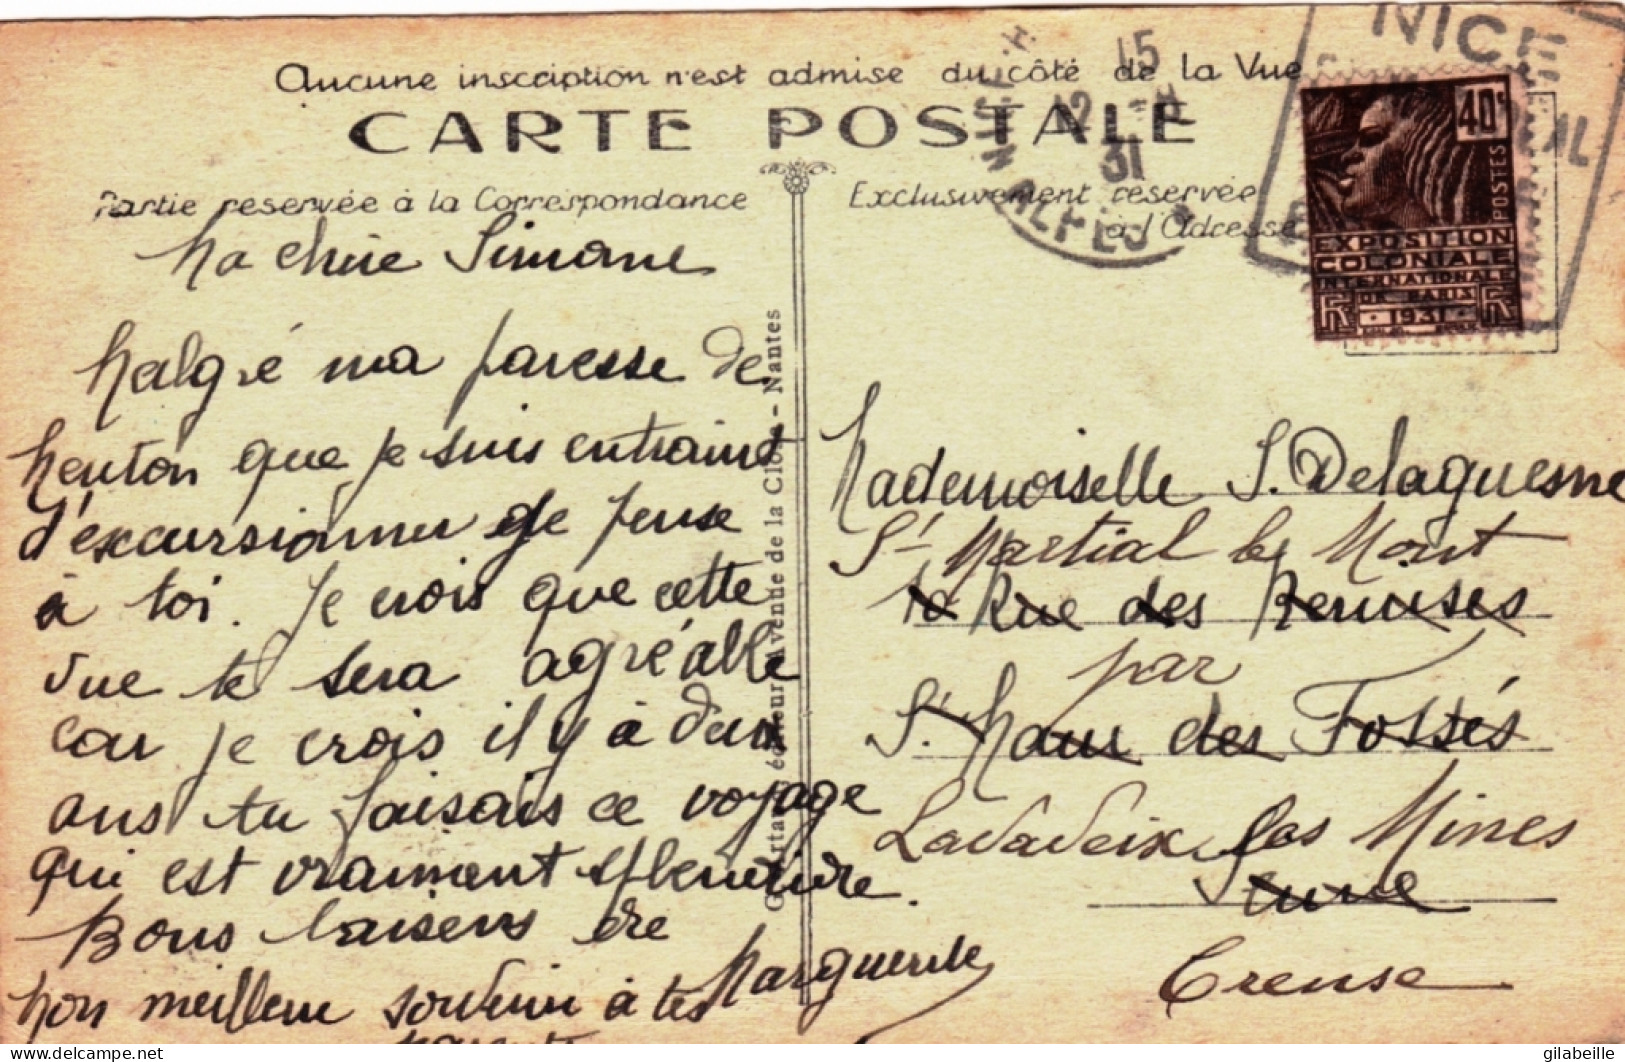 Aucune inscription n'est admise du côté de la Vue
CARTE POSTALE
Partie reservée à la Correspondance
Exclusivement reservée
à l'Adresse
NICE
15
12
31
ALPES
40c
POSTES
EXPOSITION
COLONIALE
INTERNATIONALE
DE PARIS
1931
Ma chère Simone
Malgré ma paresse de
Menton que je suis entraint
d'excursionner je pense
à toi. Je crois que cette
vue te sera agréable
car je crois il y à deux
ans tu faisais ce voyage
qui est vraiment splendide.
Bons baisers de
Marguerite
Mon meilleur souvenir à tes
parents
éditeur Avenue de la Close - Nantes
Mademoiselle S. Delaquesne
St Martial le Mont
10 Rue des Remises
par
St. Maur des Fossés
Lavaveix les Mines
Seine
Creuse
delcampe.net
gilabeille